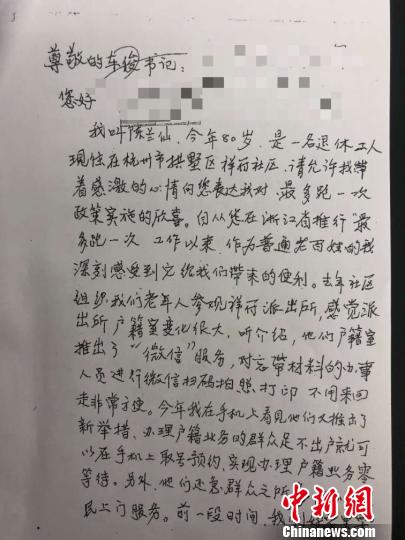 尊敬的车俊书记：
您好
我叫陈兰仙，今年80岁，是一名退休工人
现住在杭州市拱墅区祥符社区，请允许我带
着感激的心情向您表达我对，最多跑一次
政策实施的欣喜。自从您在浙江省推行“最
多跑一次 工作以来，作为普通老百姓的我
深刻感受到它给我们带来的便利。去年社区
组织我们老年人参观祥符派出所，感觉派
出所户籍室变化很大，听介绍，他们户籍室
推出了“微信”服务，对忘带材料的办事
人员进行微信扫码拍照打印 不用来回
走非常方便。今年我在手机上看见他们又推出了
新举措、办理户籍业务的群众足不出户就可
以在手机上取号预约，实现办理户籍业务零
等待。另外，他们还急群众之所
民上门服务。前一段时间，我
中新网
WWW.CHINANEWS.COM